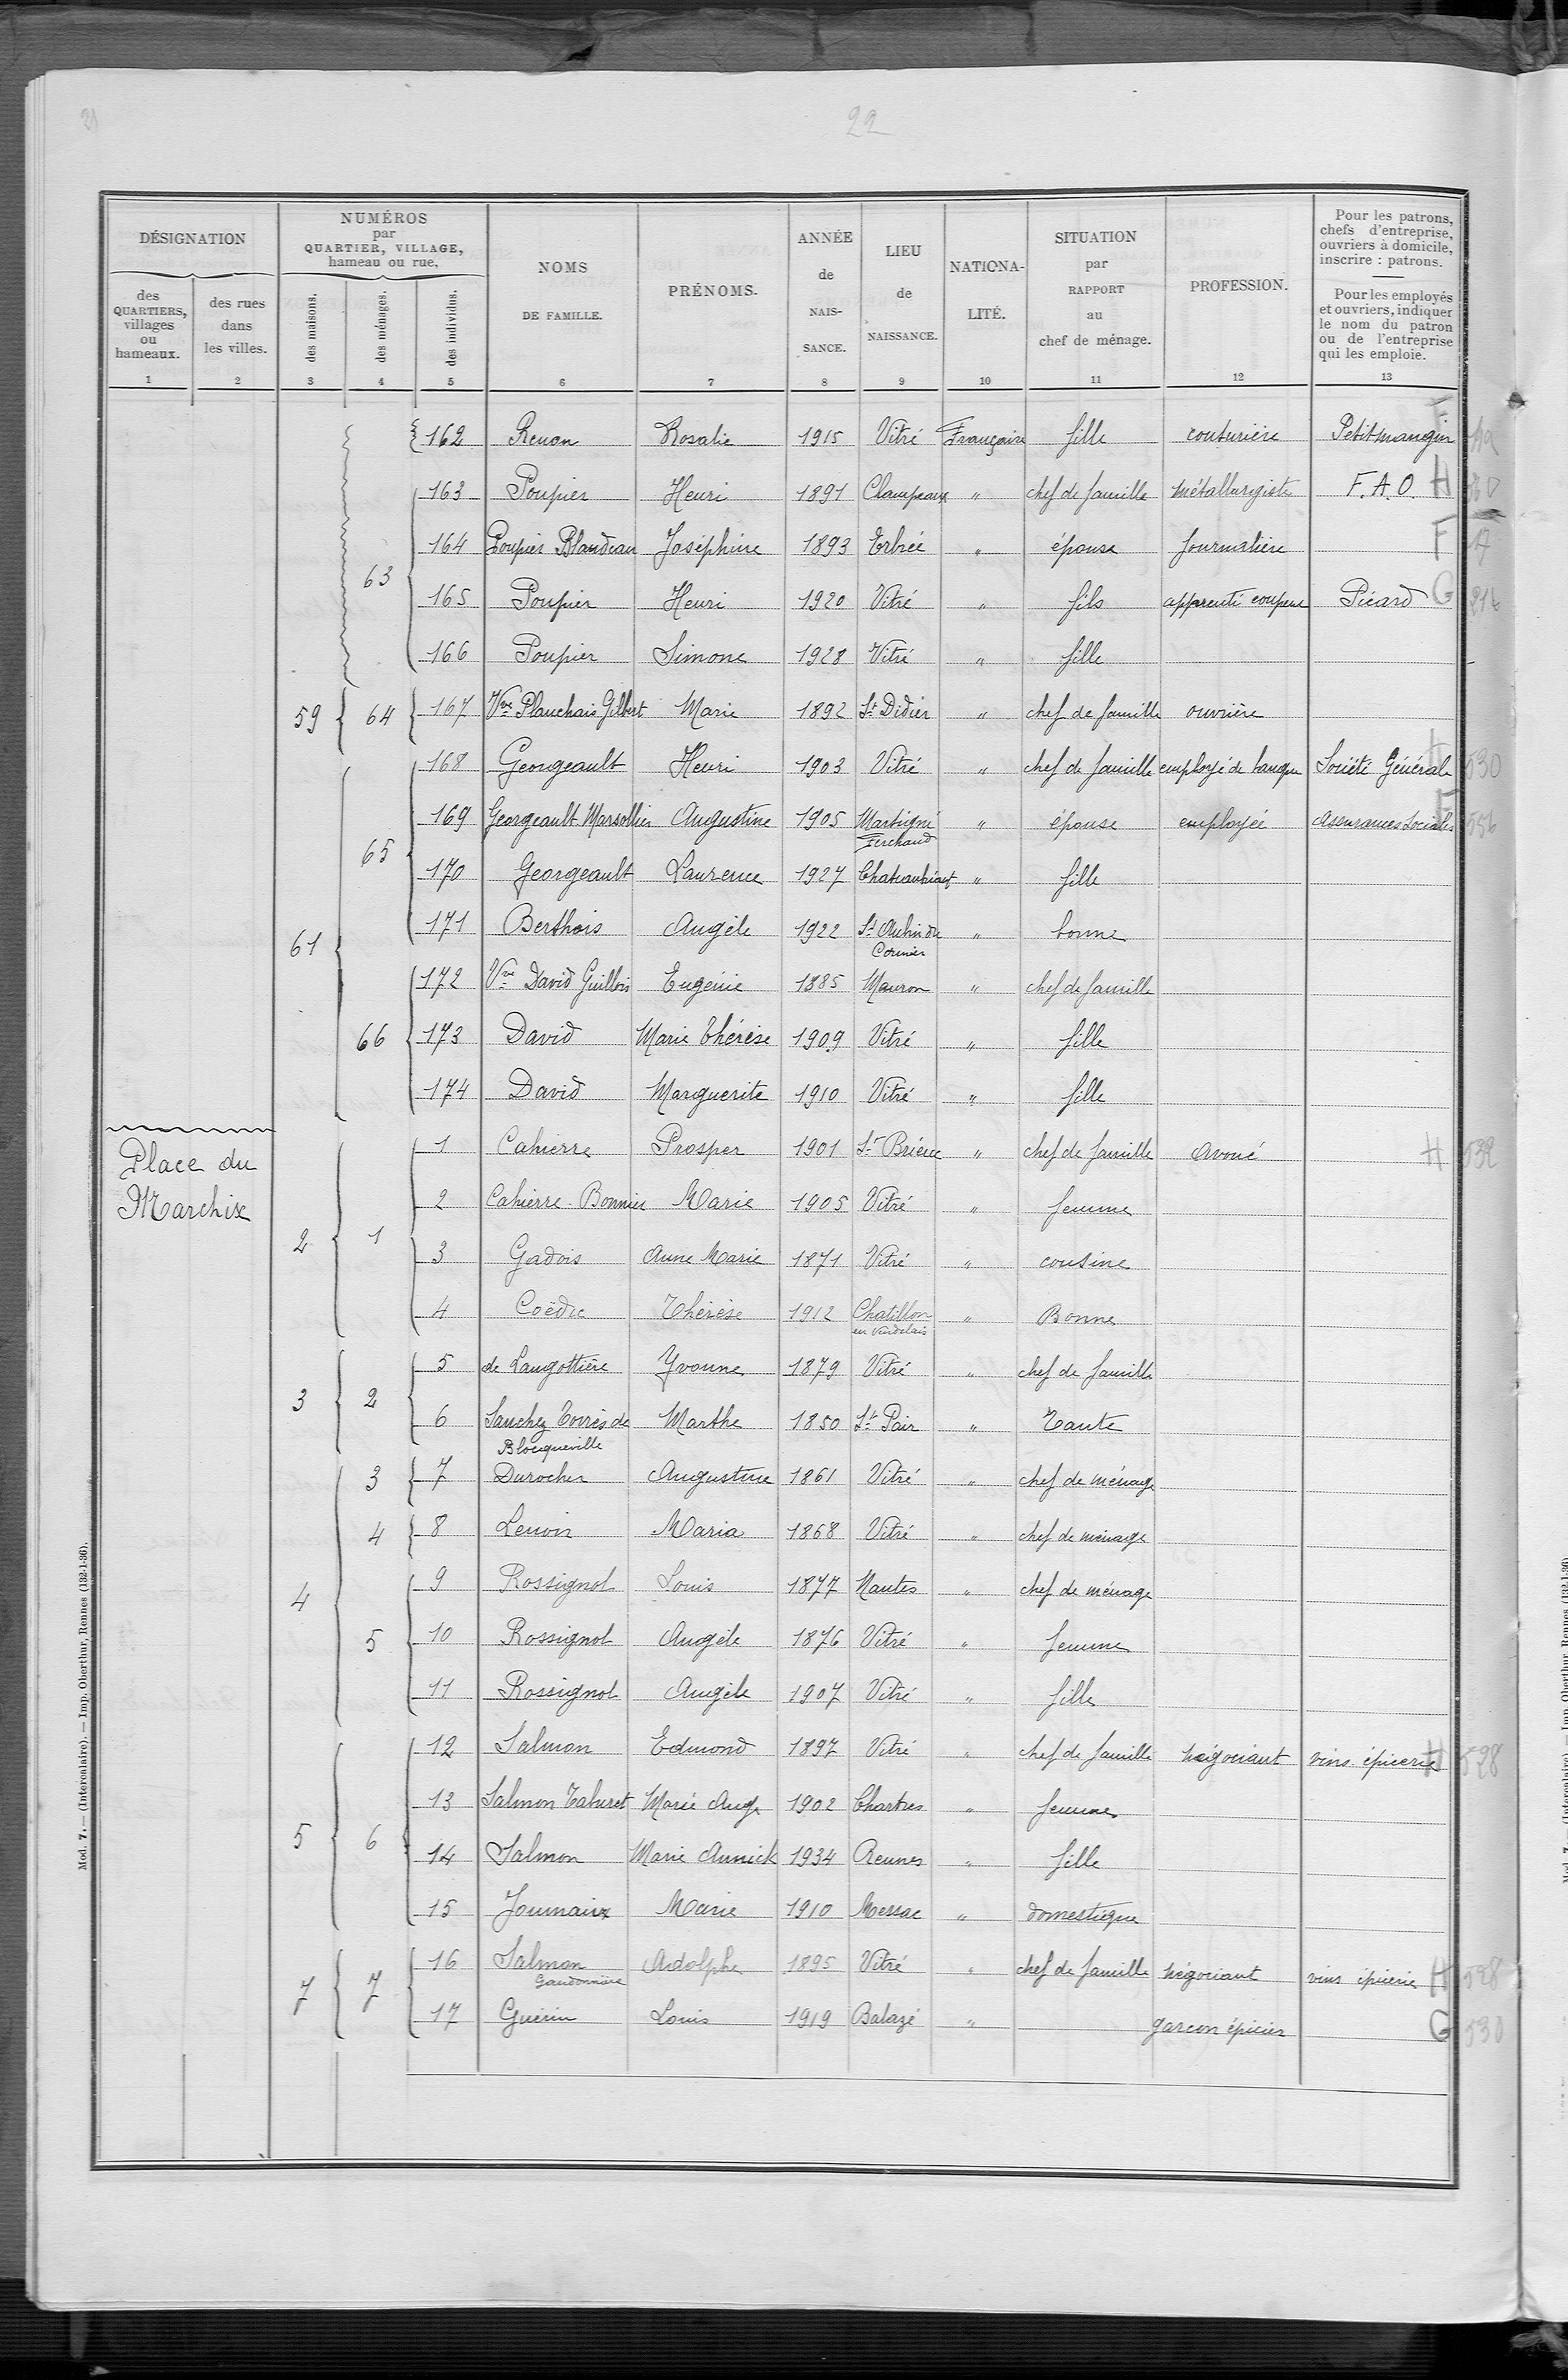 21
22
DÉSIGNATION
des QUARTIERS, villages ou hameaux.
des rues dans les villes.
NUMÉROS par QUARTIER, VILLAGE, hameau ou rue.
des maisons.
des ménages.
des individus.
NOMS DE FAMILLE.
PRÉNOMS.
ANNÉE de NAIS- SANCE.
LIEU de NAISSANCE.
NATIONA- LITÉ.
SITUATION par RAPPORT au chef de ménage.
PROFESSION.
Pour les patrons, chefs d'entreprise, ouvriers à domicile, inscrire : patrons.
Pour les employés et ouvriers, indiquer le nom du patron ou de l'entreprise qui les emploie.
1 2 3 4 5 6 7 8 9 10 11 12 13
162 Renon Rosalie 1915 Vitré Française fille couturière Petitmangin F
163 Poupier Henri 1891 Champeaux " chef de famille métallurgiste F.A.O. H
164 Poupier Blandeau Joséphine 1893 Erbrée " épouse journalière F
63
165 Poupier Henri 1920 Vitré " fils apprenti coupeur Picard G
166 Poupier Simone 1928 Vitré " fille
59 64 167 Vve Planchais Gilbert Marie 1892 St Didier " chef de famille ouvrière
168 Georgeault Henri 1903 Vitré " chef de famille employé de banque Société Générale 530
169 Georgeault Marsollier Augustine 1905 Martigné Ferchaud " épouse employée Assurances Sociales 556
65
170 Georgeault Laurence 1927 Chateaubriant " fille
61 171 Berthois Angèle 1922 St Aubin du Cormier " bonne
172 Vve David Guillois Eugénie 1885 Mauron " chef de famille
66 173 David Marie Thérèse 1909 Vitré " fille
174 David Marguerite 1910 Vitré " fille
Place du Marchix
1 Cahierre Prosper 1901 St Brieuc " chef de famille Avoué H 532
2 Cahierre-Bonnier Marie 1905 Vitré " femme
2 1
3 Gadois Anne Marie 1871 Vitré " cousine
4 Coëdic Thérèse 1912 Chatillon en Vendelais " Bonne
5 de Langottière Yvonne 1879 Vitré " chef de famille
3 2
6 Sanchez Torrès de Blocqueville Marthe 1850 St Pair " Tante
3 7 Durocher Augustine 1861 Vitré " chef de ménage
4 8 Lenoir Maria 1868 Vitré " chef de ménage
4 9 Rossignol Louis 1877 Nantes " chef de ménage
5 10 Rossignol Angèle 1876 Vitré " femme
11 Rossignol Angèle 1907 Vitré " fille
12 Salmon Edmond 1897 Vitré " chef de famille négociant vins épicerie H 528
13 Salmon Taburet Marie Ange 1902 Chartres " femme
5 6
14 Salmon Marie Annick 1934 Rennes " fille
15 Joumaux Marie 1910 Messac " domestique
16 Salmon Gaudonnière Adolphe 1895 Vitré " chef de famille négociant vins épicerie H 528
7 7
17 Guérin Louis 1919 Balazé " garçon épicier G 530
Mod. 7. — (Intercalaire). — Imp. Oberthur, Rennes (132-1-36).